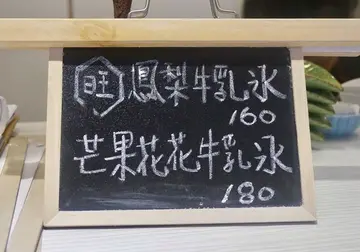 旺鳳梨牛乳冰
160
芒果花花牛乳冰
180